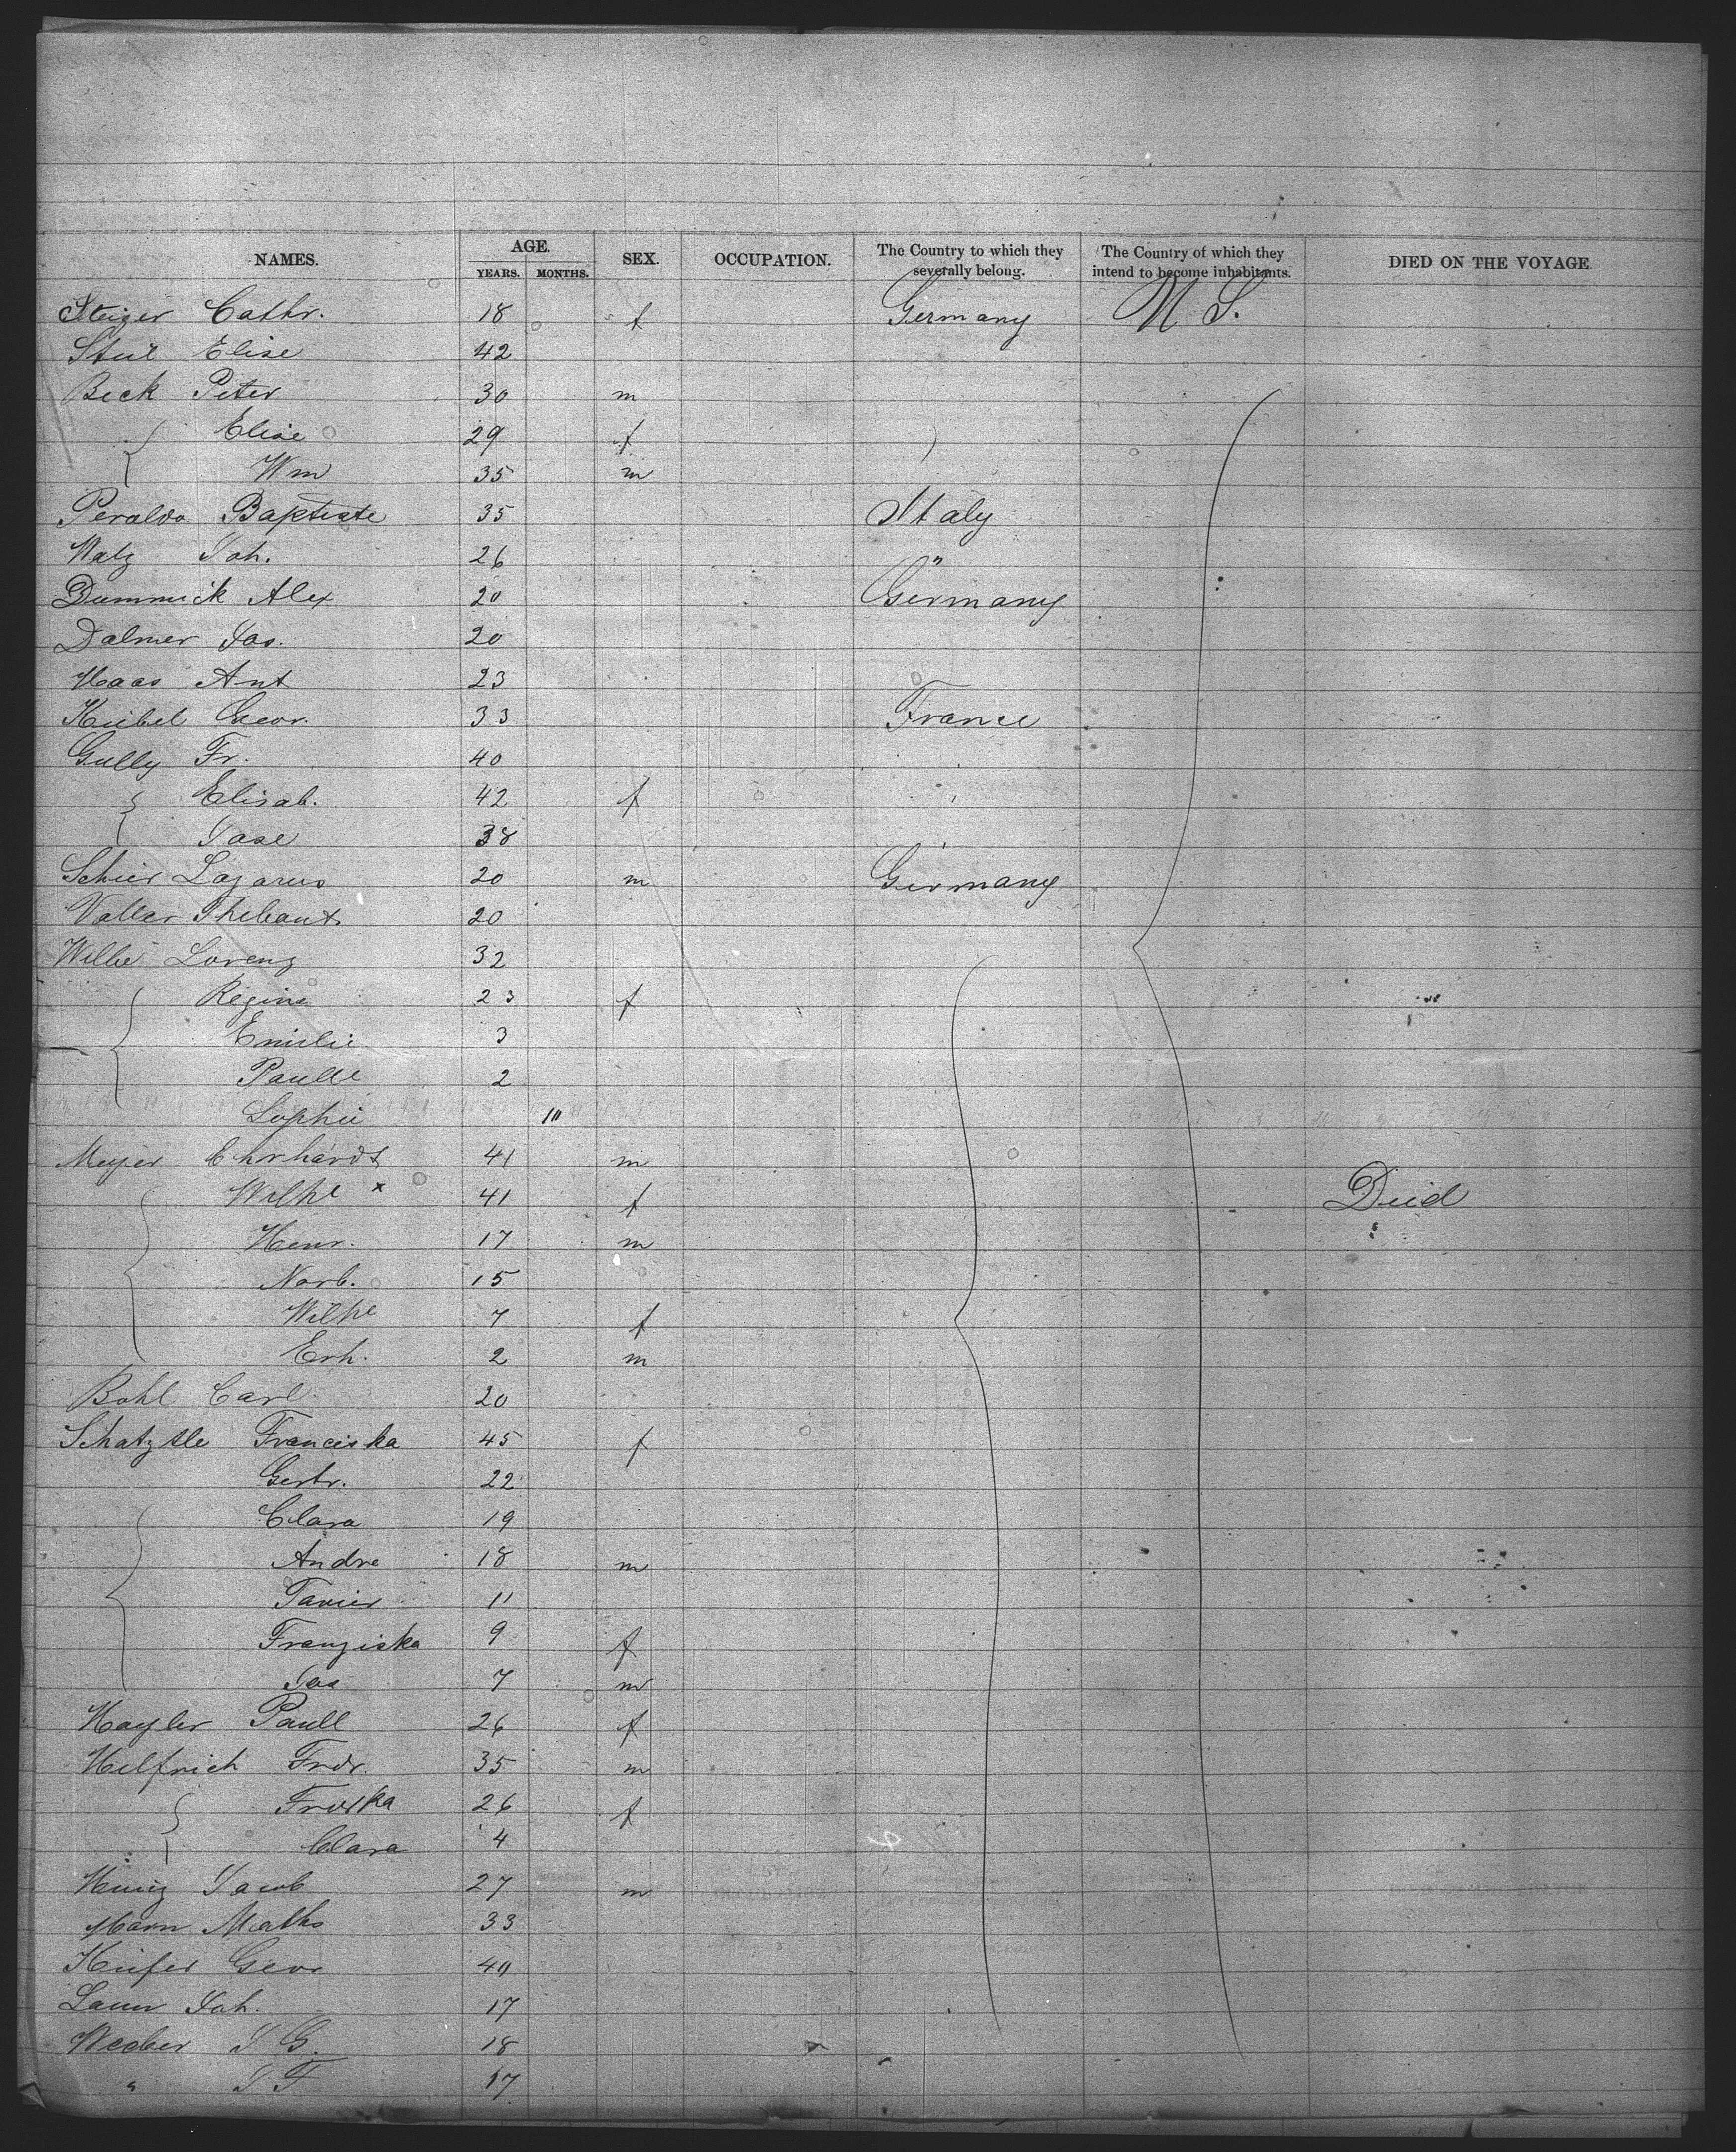 NAMES. AGE. YEARS. MONTHS. SEX. OCCUPATION. The Country to which they severally belong. The Country of which they intend to become inhabitants. DIED ON THE VOYAGE
Steiger Cathr. 18 f Germany U S.
Elise 42
Beck Peter 30 m
Elise 29 f
Wm 35 m
Peraldo Baptiste 35 Italy
Walz Joh. 26 "
Dummick Alex 20 Germany
Dalmer Jos. 20
Haas Ant 23
Kiebel Geor. 33 France
Gully Fr. 40
Elisab. 42 f
38
Schier Lazarus 20 m Germany
Vallar Thebaut 20
Wilhe Lorenz 32
Regine 23 f
Emilie 3
Paulle 2
Sophie
Meyer Ehrhardt 41 m
Wilhe x 41 f Died
Henr. 17 m
Norb. 15
Wilhe 7 f
Erh. 2 m
Bohl Carl 20
Schatztle Franciska 45 f
Gertr. 22
Clara 19
Andre 18 m
11
Franziska 9 f
Jos 7 m
Paull 26 f
Helfrich Frdr. 35 m
26 f
Clara 4
Jacob 27 m
Maths 33
Kiefer Geor
Joh. 17
Weber J G. 18
" J F 17